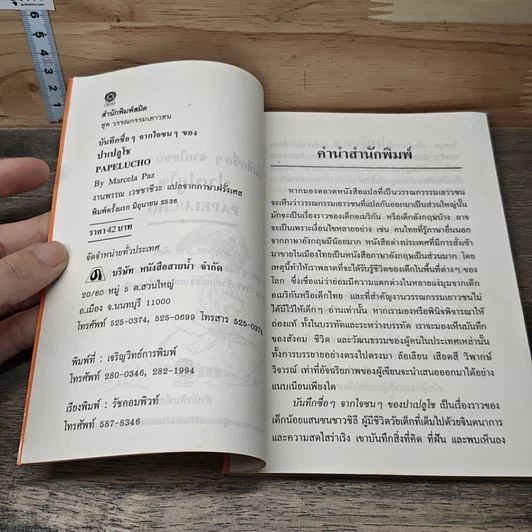 สำนักพิมพ์สมิต
ชุด วรรณกรรมเยาวชน
บันทึกซื่อ ๆ จากใจซน ๆ ของ
ปาเปลูโช
PAPELUCHO
By Marcela Paz
งามพรรณ เวชชาชีวะ แปลจากภาษาฝรั่งเศส
พิมพ์ครั้งแรก มิถุนายน 2536
ราคา 42 บาท
จัดจำหน่ายทั่วประเทศ
บริษัท หนังสือสายน้ำ จำกัด
20/60 หมู่ 5 ต.สวนใหญ่
อ.เมือง จ.นนทบุรี 11000
โทรศัพท์ 525-0374, 525-0699 โทรสาร 525-0374
พิมพ์ที่ : เจริญวิทย์การพิมพ์
โทรศัพท์ 280-0346, 282-1994
เรียงพิมพ์ : รัชคอมพิวท์
โทรศัพท์ 587-8346
คำนำสำนักพิมพ์
หากมองตลาดหนังสือแปลที่เป็นวรรณกรรมเยาวชน
จะเห็นว่าวรรณกรรมเยาวชนที่แปลกันออกมาเป็นส่วนใหญ่นั้น
มักจะเป็นเรื่องราวของเด็กอเมริกัน หรือเด็กอังกฤษบ้าง อาจ
จะเป็นเพราะเงื่อนไขหลายอย่าง เช่น คนไทยที่รู้ภาษาอื่นนอก
จากภาษาอังกฤษมีน้อยมาก หนังสือต่างประเทศที่มีการสั่งเข้า
มาขายในเมืองไทยเป็นหนังสือภาษาอังกฤษเป็นส่วนมาก โดย
เหตุนี้ทำให้เราพลาดที่จะได้รับรู้ชีวิตของเด็กในพื้นที่ต่าง ๆ ของ
โลก ซึ่งเชื่อแน่ว่าย่อมมีความแตกต่างในหลายแง่มุมจากเด็ก
อเมริกันหรือเด็กไทย และที่สำคัญงานวรรณกรรมเยาวชนไม่
ได้มีไว้ให้เด็กๆ อ่านเท่านั้น หากเรามองหรือพินิจพิจารณาให้
ถ่องแท้ ทั้งในบรรทัดและระหว่างบรรทัด เราจะมองเห็นบันทึก
ของสังคม ชีวิต และวัฒนธรรมของผู้คนในประเทศเหล่านั้น
ทั้งการบรรยายอย่างตรงไปตรงมา ล้อเลียน เสียดสี วิพากษ์
วิจารณ์ เท่าที่อัจฉริยภาพของผู้เขียนจะนำเสนอออกมาได้อย่าง
แนบเนียนเพียงใด
บันทึกซื่อ ๆ จากใจซน ๆ ของปาเปลูโช เป็นเรื่องราวของ
เด็กน้อยแสนซนชาวชิลี ผู้มีชีวิตวัยเด็กที่เต็มไปด้วยจินตนาการ
และความสดใสร่าเริง เขาบันทึกสิ่งที่คิด ที่ฝัน และพบเห็นลง